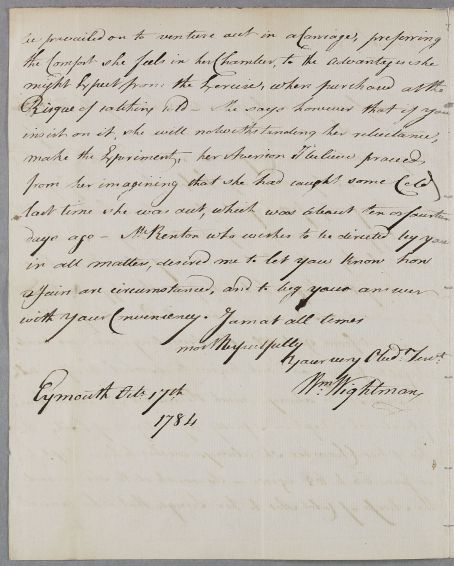 be prevailed on to venture out in a Carriage, preferring
the Comfort she feels in her Chamber, to the advantages she
might Expect from the Exercise, when purchased at the
Risque of catching cold – She says however that if you
insist on it, she will notwithstanding her reluctance,
make the Experiment, – her aversion I believe proceeds
from her imagining that she had caught some Cold
last time she was out, which was about ten or fourteen
days ago – Mr. Renton who wishes to be directed by you
in all matters, desired me to let you know how
affairs are circumstanced, and to beg your answer
with your Conveniency. I am at all times
most Respectfully
Your very Obedt. Servt.
Wm. Wightman
Eymouth Octr. 17th
1784